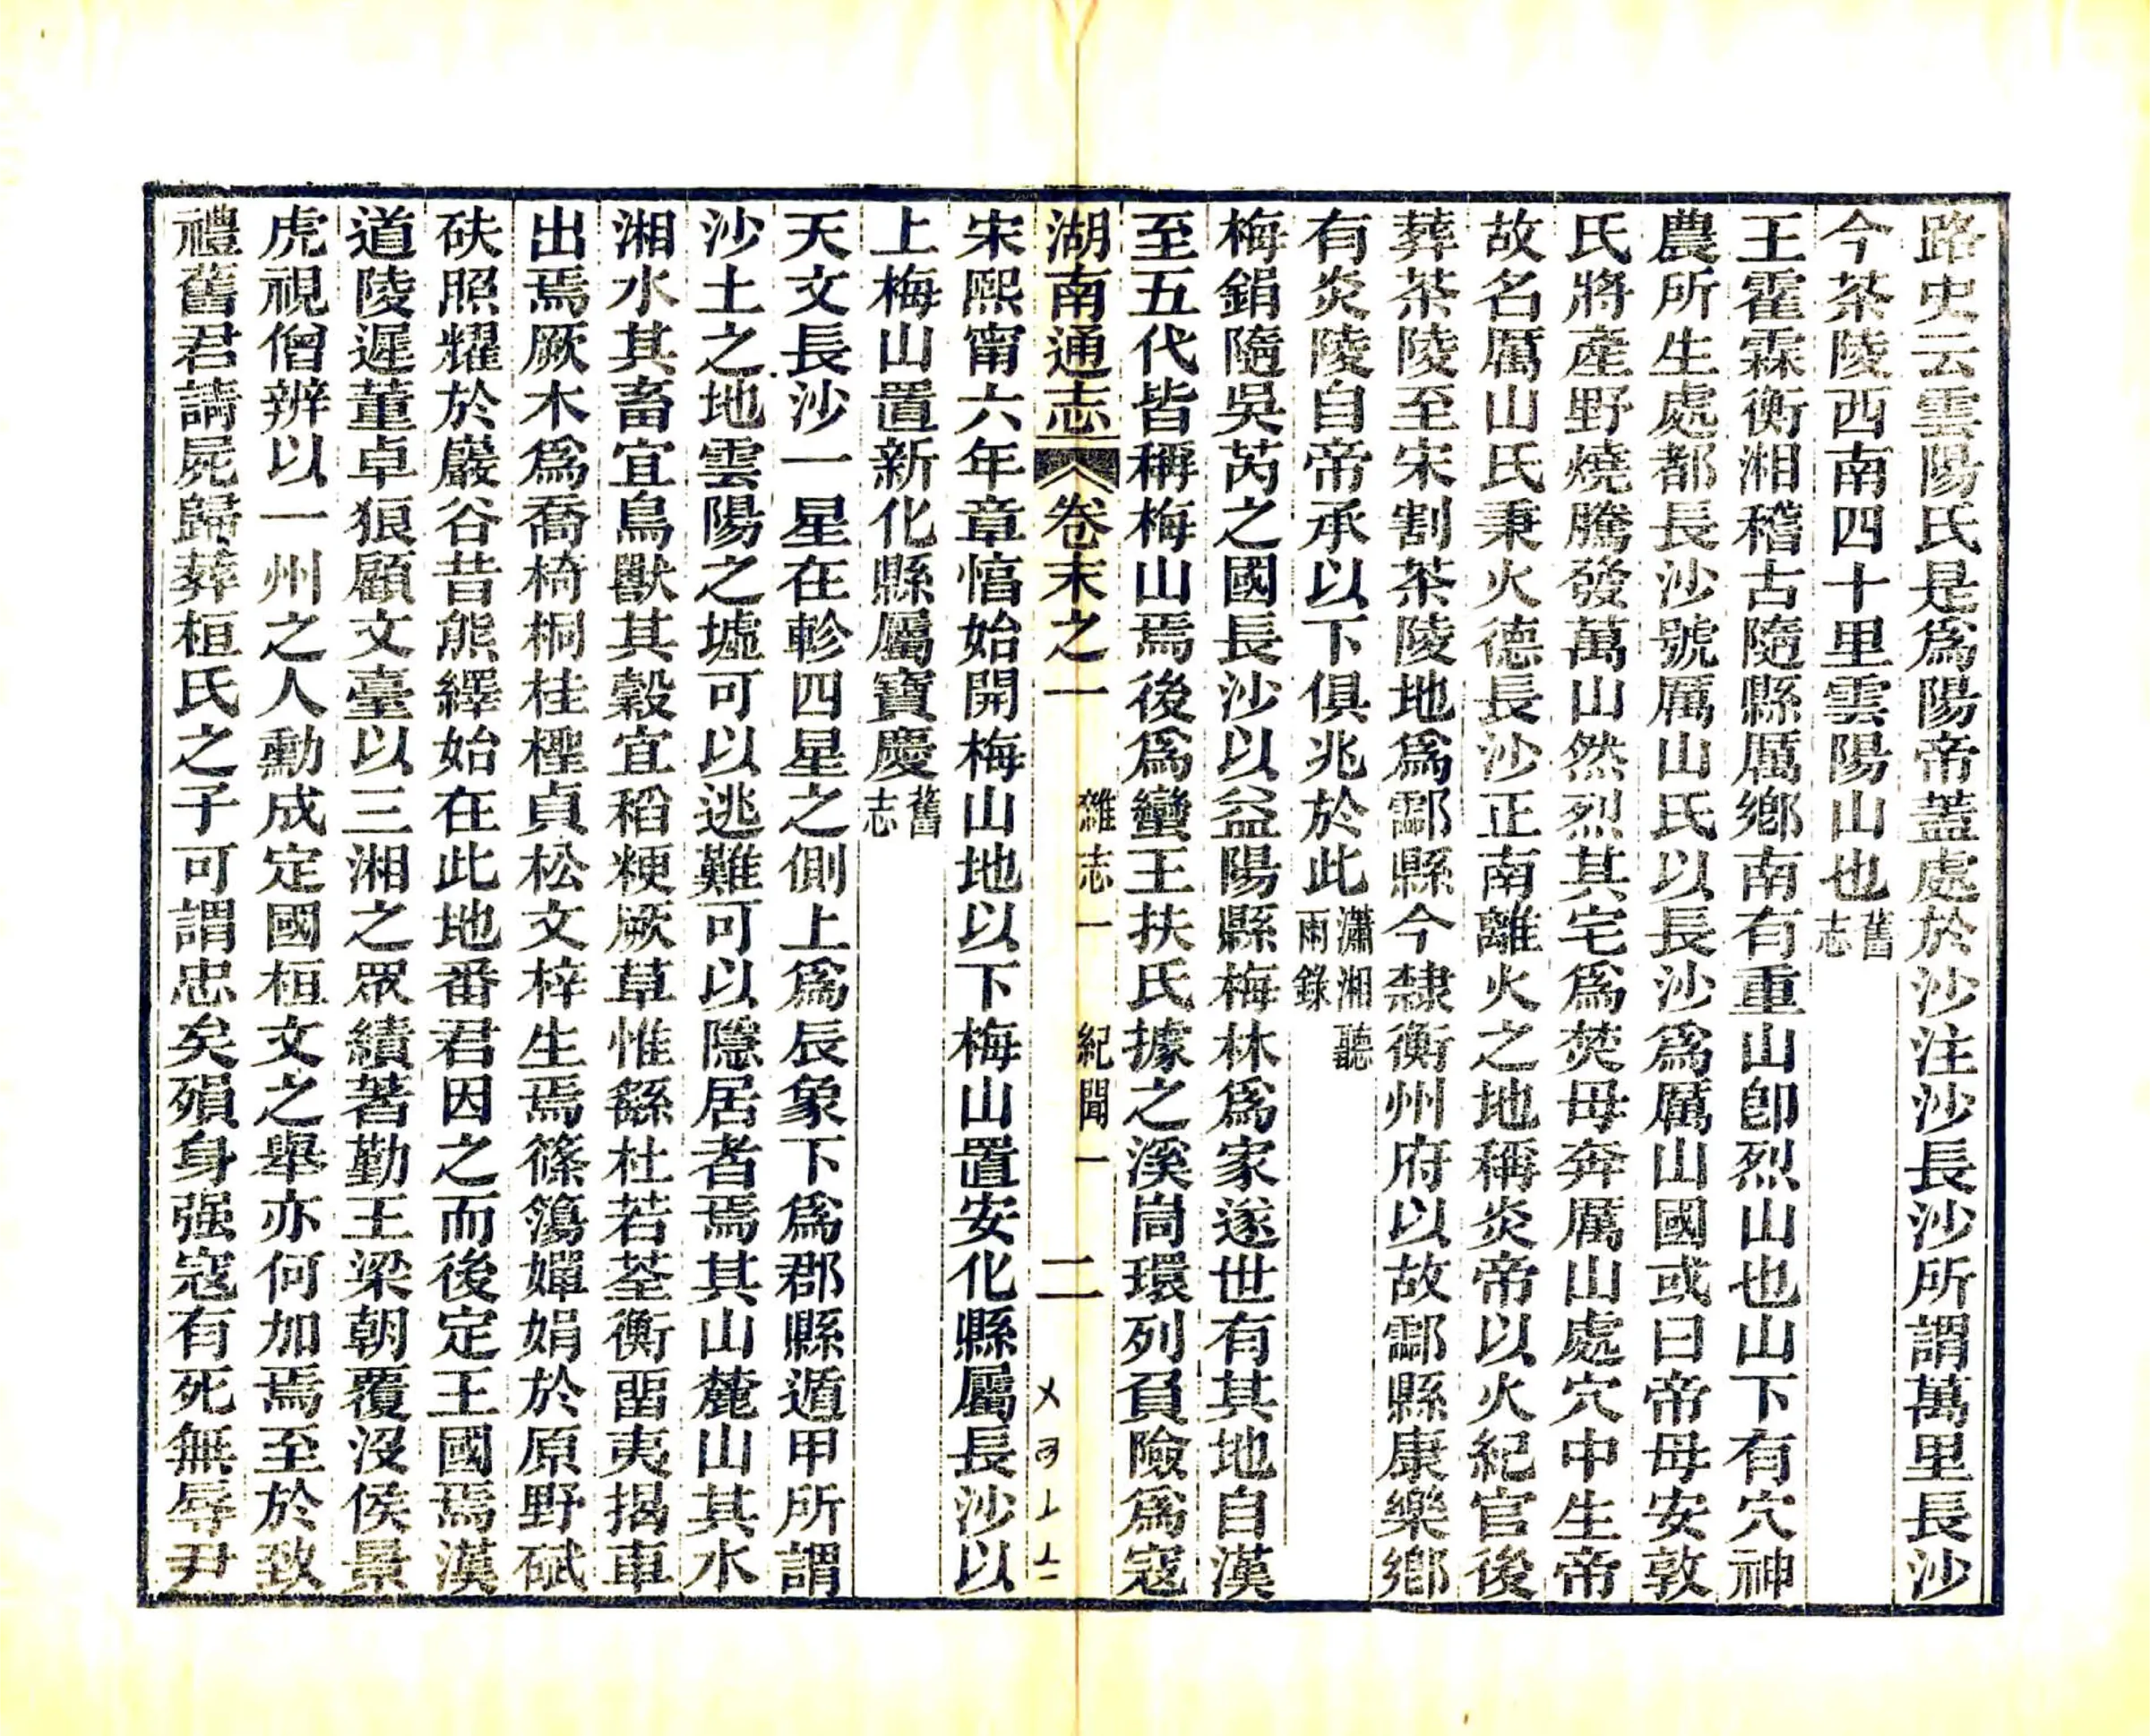 路史云雲陽氏是爲陽帝蓋處於沙注沙長沙所謂萬里長沙
今茶陵西南四十里雲陽山也舊志
王霍霖衡湘稽古隨縣厲鄉南有重山卽烈山也山下有穴神
農所生處都長沙號厲山氏以長沙爲厲山國或曰帝母安敦
氏將產野燒騰發萬山然烈其宅爲焚母奔厲山處穴中生帝
故名厲山氏秉火德長沙正南離火之地稱炎帝以火紀官後
葬茶陵至宋割茶陵地爲酃縣今隸衡州府以故酃縣康樂鄉
有炎陵自帝承以下俱兆於此瀟湘聽雨錄
梅鋗隨吳芮之國長沙以益陽縣梅林爲家遂世有其地自漢
至五代皆稱梅山焉後爲蠻王扶氏據之溪峝環列負險爲寇
湖南通志 卷末之一 雜志一 紀聞一 二
宋熙甯六年章惇始開梅山地以下梅山置安化縣屬長沙以
上梅山置新化縣屬寶慶舊志
天文長沙一星在軫四星之側上爲辰象下爲郡縣遁甲所謂
沙土之地雲陽之墟可以逃難可以隱居者焉其山麓山其水
湘水其畜宜鳥獸其穀宜稻粳厥草惟繇杜若荃衡畱夷揭車
出焉厥木爲喬椅桐桂檉貞松文梓生焉篠簜嬋娟於原野碔
砆照耀於巖谷昔熊繹始在此地番君因之而後定王國焉漢
道陵遲董卓狼顧文臺以三湘之眾績著勤王梁朝覆沒侯景
虎視僧辨以一州之人勳成定國桓文之舉亦何加焉至於致
禮舊君請屍歸葬桓氏之子可謂忠矣殞身强寇有死無辱尹